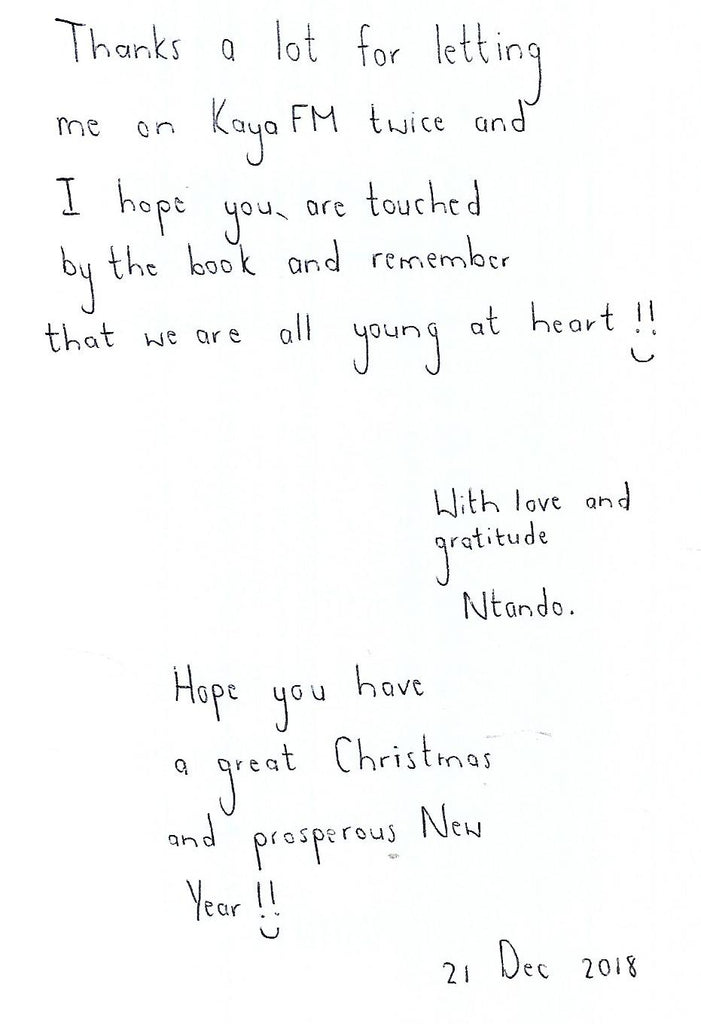 Thanks a lot for letting
me on Kaya FM twice and
I hope you are touched
by the book and remember
that we are all young at heart !!
With love and
gratitude
Ntando.
Hope you have
a great Christmas
and prosperous New
Year !!
21 Dec 2018